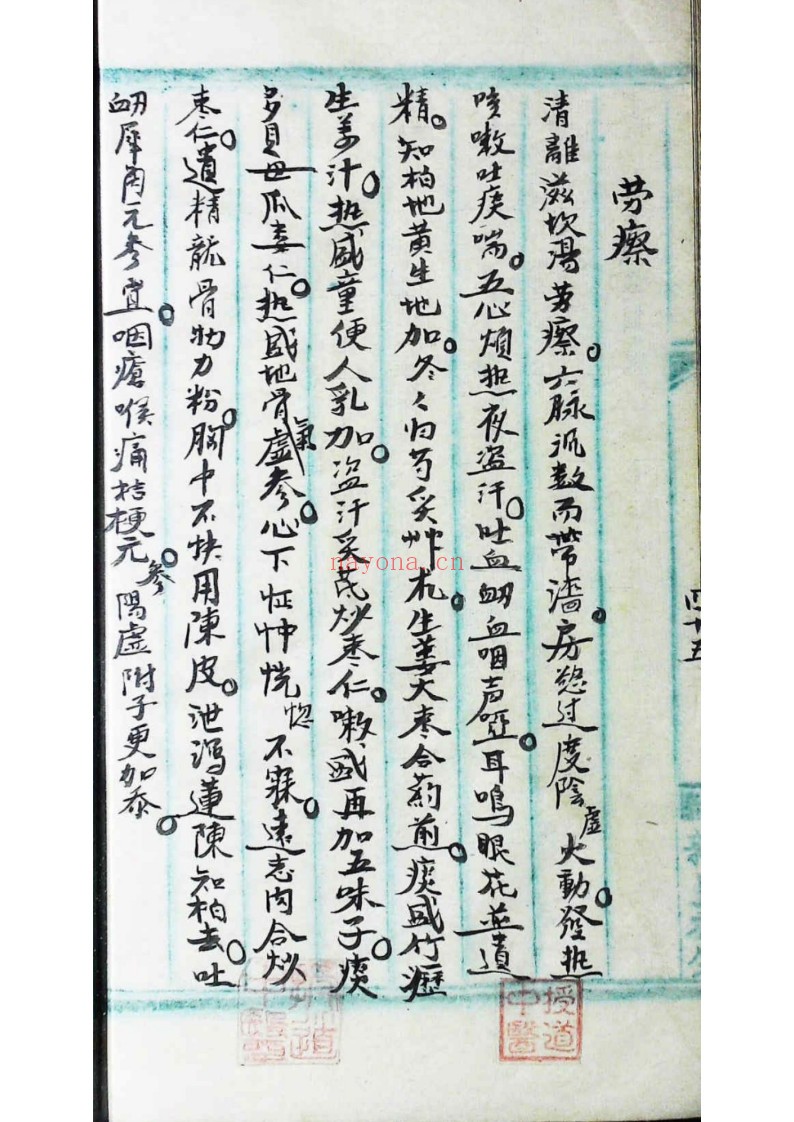 劳瘵
清離滋坎湯劳瘵。六脉沉数而带濇。房慾过度陰虛火動。發热
咳嗽吐痰喘。五心煩热夜盗汗。吐血衂血咽声啞。耳鳴眼花並遺
精。知柏地黄生地加。冬冬归芍炙艸朮。生姜大枣合葯煎。痰盛竹瀝
生姜汁。热盛童便人乳加。盗汗炙芪炒枣仁。嗽盛再加五味子。痰
多貝母瓜蒌仁。热盛地骨氣虛参。心下怔忡恍惚不寐。遠志肉合炒
枣仁。遺精龍骨牡力粉。胸中不快用陳皮。泄瀉蓮陳知柏去。吐
衂犀角元参宜。咽瘡喉痛桔梗元参。陽虛附子更加桼。
四十五
授道中醫
nayona.cn